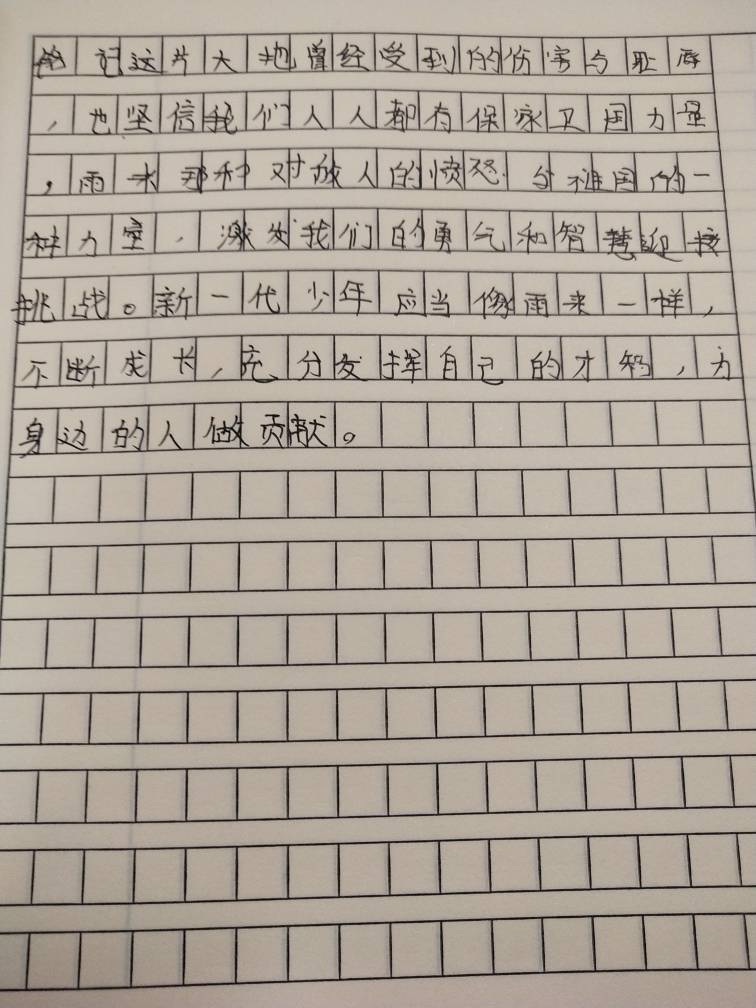 记这片大地曾经受到的伤害与耻辱
，也坚信我们人人都有保家卫国力量
，雨来那种对敌人的愤怒与祖国的一
种力量，激发我们的勇气和智慧迎接
挑战。新一代少年应当像雨来一样，
不断成长，充分发挥自己的才智，为
身边的人做贡献。